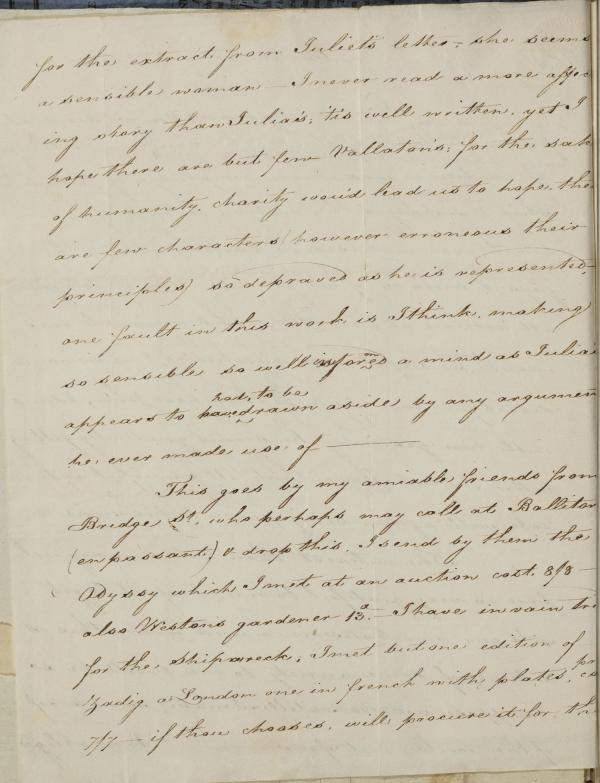 for the extract from Juliet's letter; she seems
a sensible woman — I never read a more affec
ing story than Julia's; 'tis well written, yet I
hope there are but few Vallaton's; for the sake
of humanity, charity wou'd lead us to hope, the
are few characters (however erroneous their
principles) so depraved as he is represented —
one fault in this work is I think, making
so sensible so well informed a mind as Julia's
had, to be
appears to have drawn aside by any argumen
he, ever made use of ———
This goes by my amiable friends from
Bridge St. who perhaps may call at Ballitor
(en passant) & drop this. I send by them the
Odyssy which I met at an auction cost. 8/8 —
also Westons gardener 13d. — I have in vain tri
for the shipwreck; I met but one edition of
Zadig a London one in french with plates, pr
7/7 — if thou chooses, will procure it for th